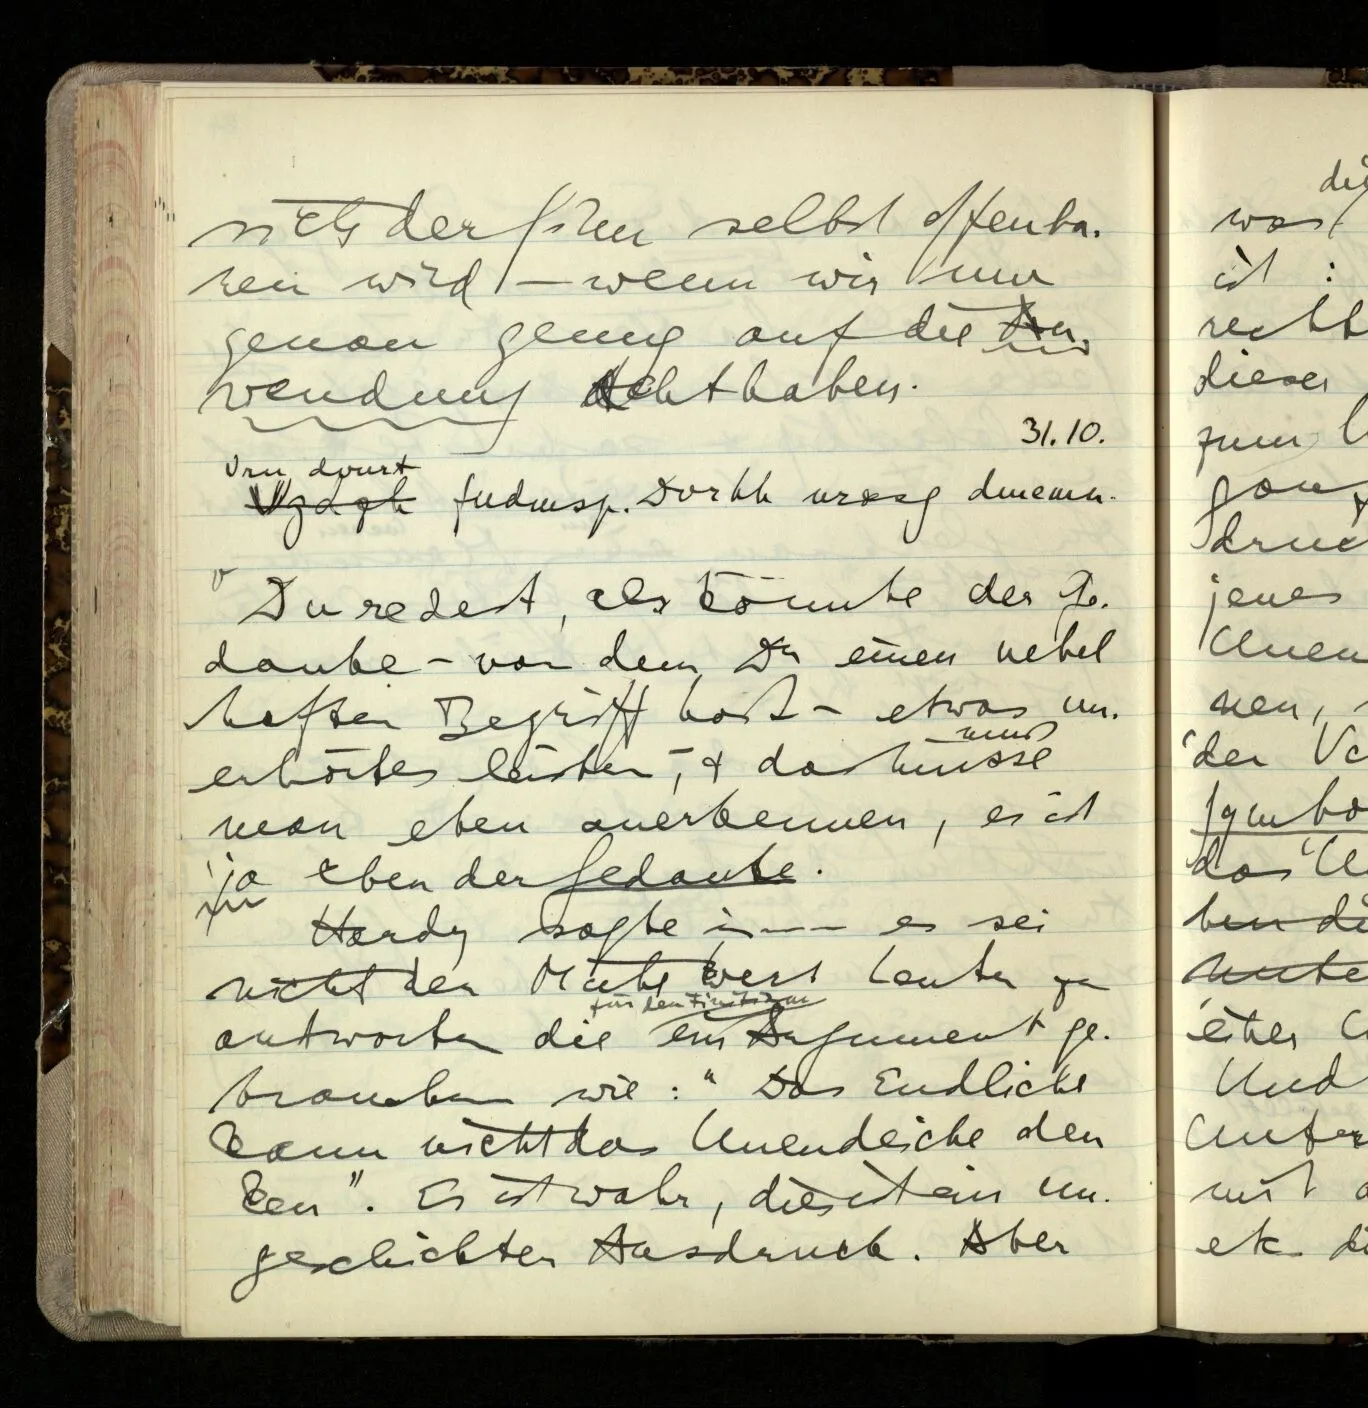 sich der Sinn selbst offenba-
ren wird – wenn wir nur
genau genug auf die An-
wendung Acht haben.
31.10.
"Du redest, als könnte der Ge-
danke – von dem Du einen nebel
haften Begriff hast – etwas un-
erhörtes leisten", & das
muß
man eben anerkennen, es ist
ja eben der Gedanke.
Hardy sagte es sei
nicht der Mühe wert Leuten zu
für den Finitism
antworten die ein Argument ge-
brauchen wie: "Das Endliche
kann nicht das Unendliche den
ken". Es ist wahr, dies ist ein un-
geschickter Ausdruck. Aber
was
ist :
recht
dieser
zum
druck
jenes
Unen
nen,
der
Symbo
das
Und
mit